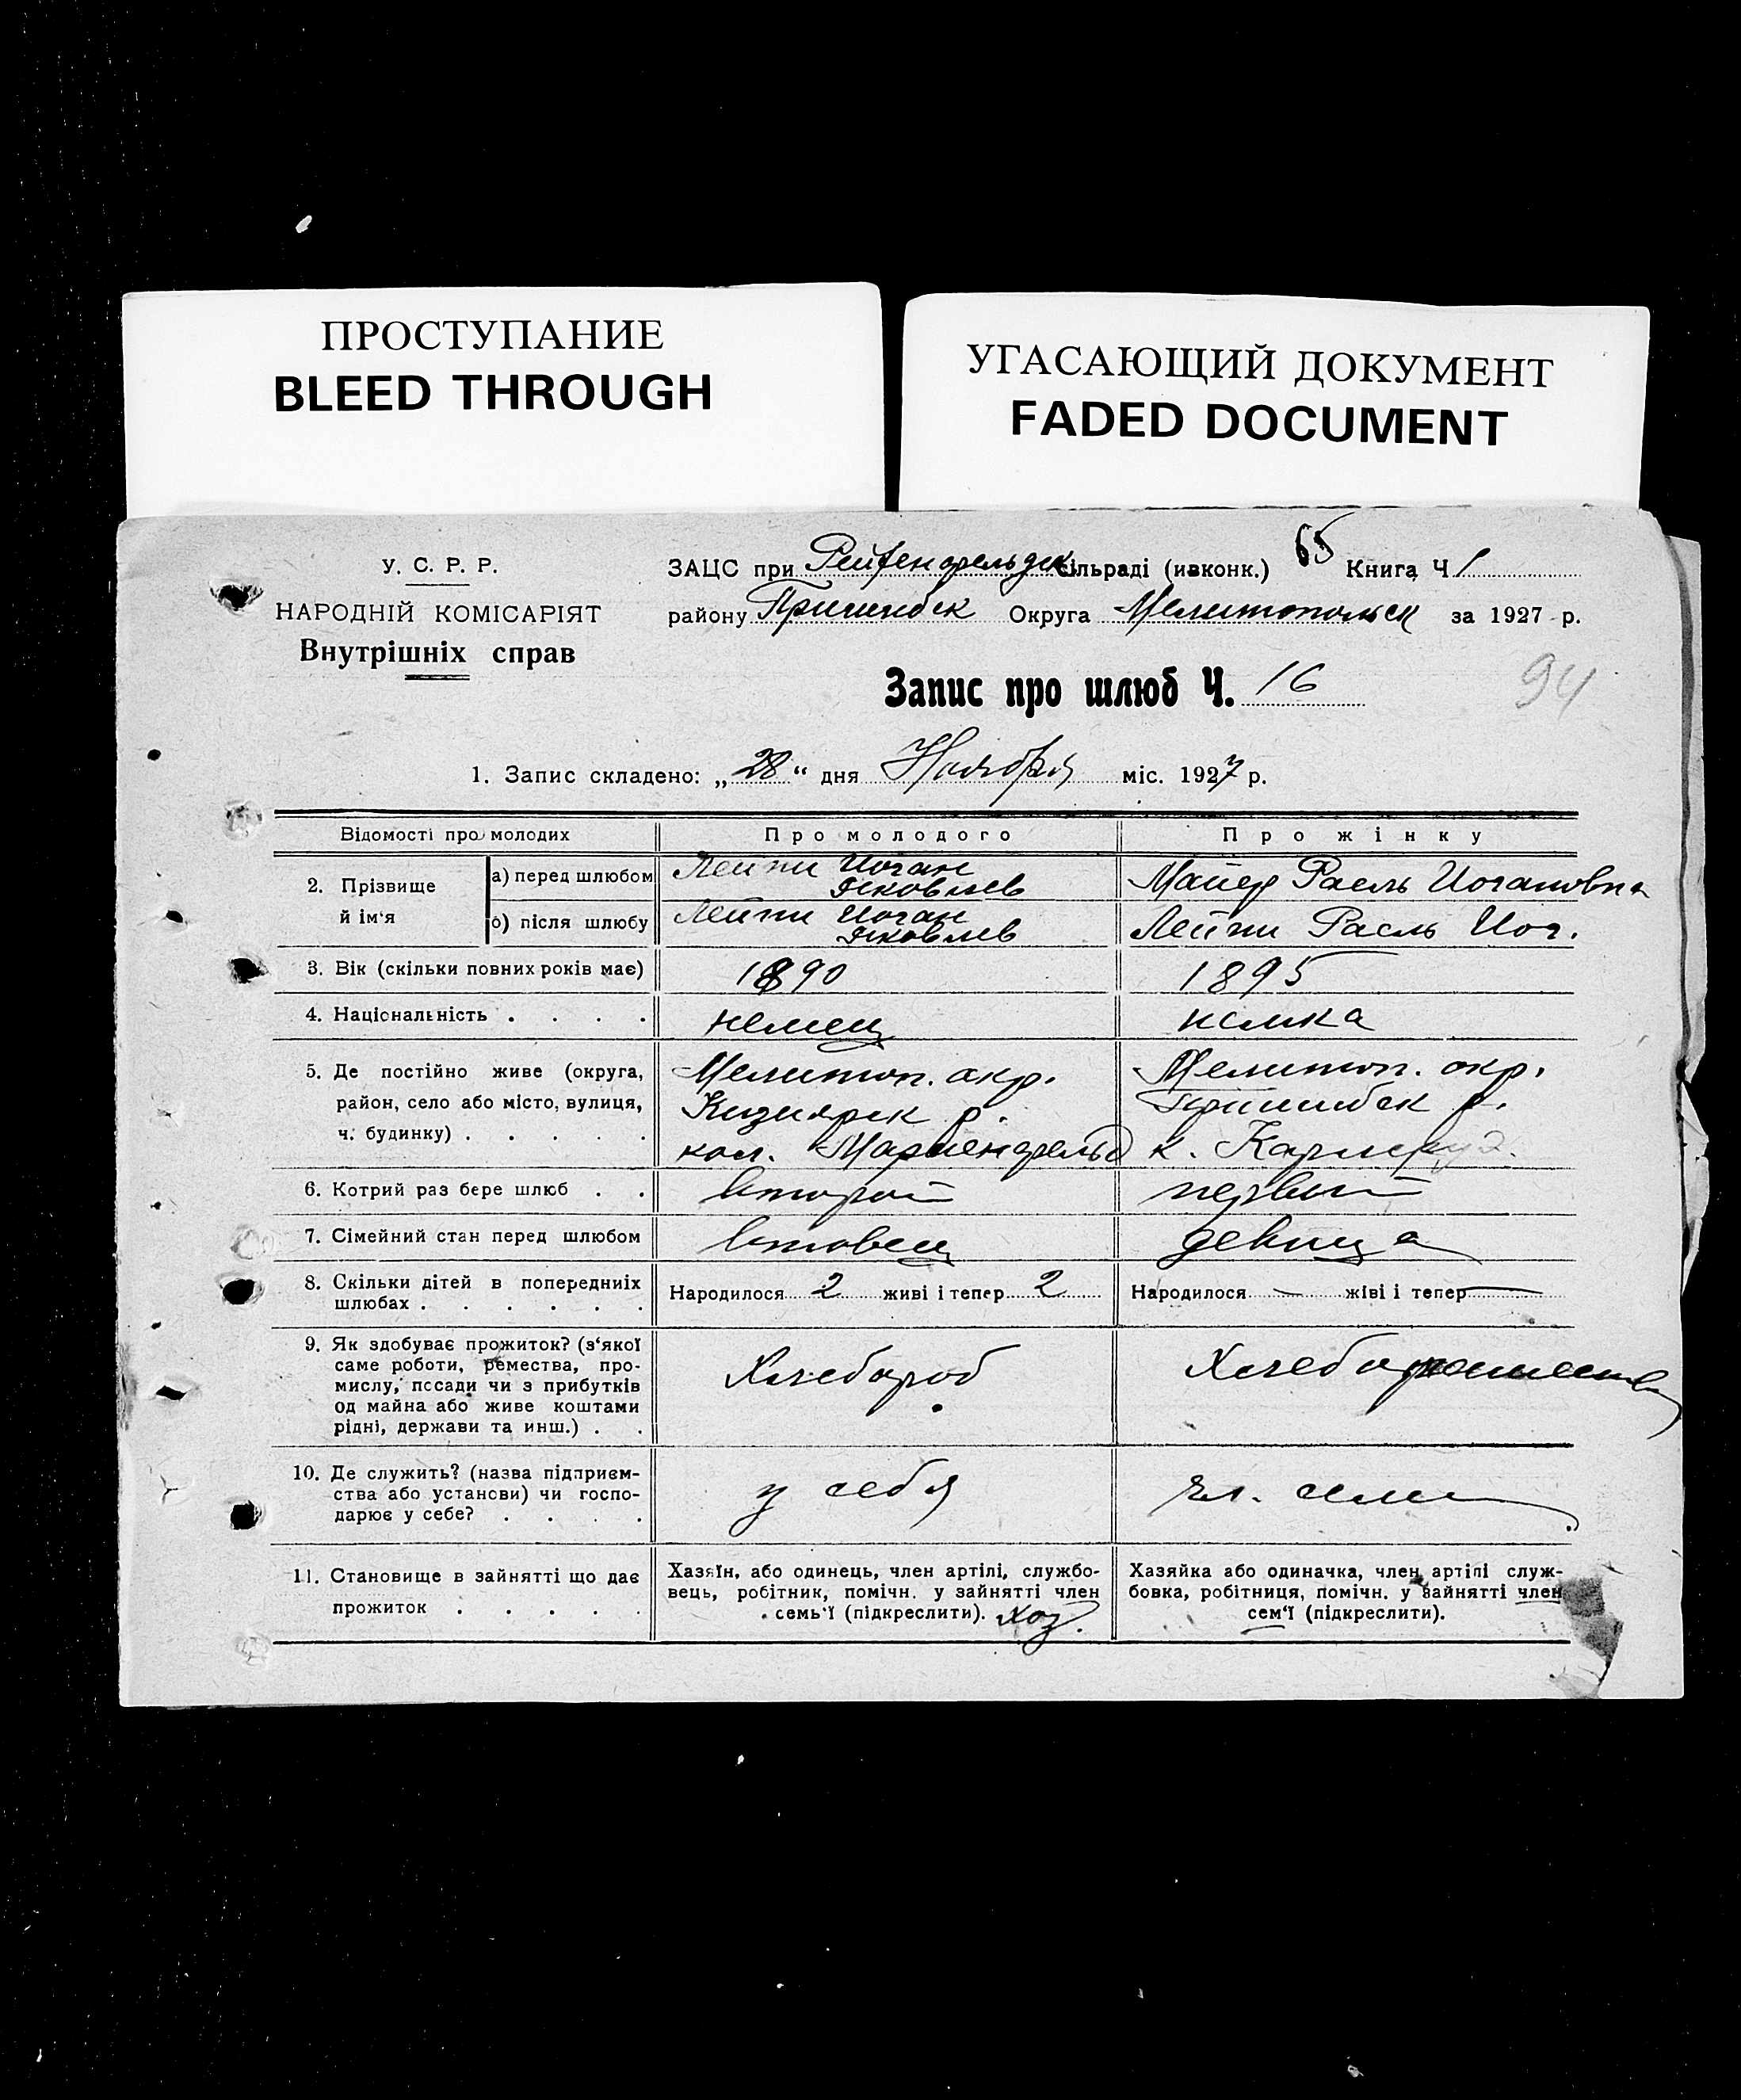 ПРОСТУПАНИЕ
BLEED THROUGH
УГАСАЮЩИЙ ДОКУМЕНТ
FADED DOCUMENT
У. С. Р. Р.
НАРОДНІЙ КОМІСАРІЯТ
Внутрішніх справ
65
ЗАЦС при Рейхенфельдск. сільраді (ивконк.) Книга Ч 1
району Пришибск Округа Мелитопольск за 1927 р.
94
Запис про шлюб Ч. 16
1. Запис складено: „28“ дня Ноября міс. 1927 р.
Відомості про молодих Про молодого Про жінку
2. Прізвище й ім‘я
а) перед шлюбом Лейпи Иоган Яковлев Майер Раель Иогановна
б) після шлюбу Лейпи Иоган Яковлев Лейпи Раель Иог.
3. Вік (скільки повних років має) 1890 1895
4. Національність . . . . немец немка
5. Де постійно живе (округа, Мелитоп. окр. Мелитоп. окр.
район, село або місто, вулиця, Кизиярск р. Пришибск р.
ч. будинку) . . . . . кол. Мариенфельд к. Карлсруэ.
6. Котрий раз бере шлюб . . второй первый
7. Сімейний стан перед шлюбом вдовец девица
8. Скільки дітей в попередніх Народилося 2 живі і тепер 2 Народилося — жіві і тепер —
шлюбах . . . . . .
9. Як здобуває прожиток? (з‘якої
саме роботи, ремества, про-
мислу, посади чи з прибутків
од майна або живе коштами
рідні, держави та инш.) . .
Хлебороб
Хлебопашество
10. Де служить? (назва підприєм-
ства або установи) чи госпо-
дарює у себе? . . . .
у себя
чл. семьи
11. Становище в зайнятті що дає
прожиток . . . . .
Хазяїн, або одинець, член артілі, службо-
вець, робітник, помічн. у зайнятті член
семь‘ї (підкреслити). хоз.
Хазяйка або одиначка, член артілі служ-
бовка, робітниця, помічн. у зайнятті член
сем‘ї (підкреслити).